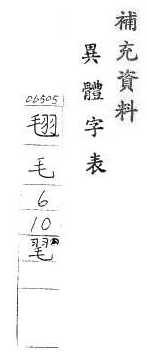 補充資料
異體字表
06505
毛
6
10
毣